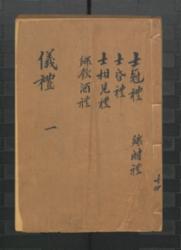 士冠禮
士昏禮
士相見禮
鄉飲酒禮
鄉射禮
儀禮 一